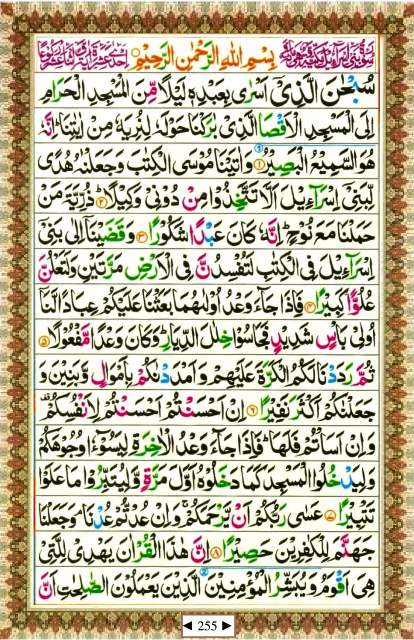 بِسْمِ اللهِ الرَّحْمٰنِ الرَّحِيْمِ
سُبْحٰنَ الَّذِيْٓ اَسْرٰى بِعَبْدِهٖ لَيْلًا مِّنَ الْمَسْجِدِ الْحَرَامِ
اِلَى الْمَسْجِدِ الْاَقْصَا الَّذِيْ بٰرَكْنَا حَوْلَهٗ لِنُرِيَهٗ مِنْ اٰيٰتِنَا ؕ اِنَّهٗ
هُوَ السَّمِيْعُ الْبَصِيْرُ ۝۱ وَاٰتَيْنَا مُوْسَى الْكِتٰبَ وَجَعَلْنٰهُ هُدًى
لِّبَنِيْٓ اِسْرَآءِيْلَ اَلَّا تَتَّخِذُوْا مِنْ دُوْنِيْ وَكِيْلًا ۝۲ ذُرِّيَّةَ مَنْ
حَمَلْنَا مَعَ نُوْحٍ ؕ اِنَّهٗ كَانَ عَبْدًا شَكُوْرًا ۝۳ وَقَضَيْنَآ اِلٰى بَنِيْٓ
اِسْرَآءِيْلَ فِي الْكِتٰبِ لَتُفْسِدُنَّ فِي الْاَرْضِ مَرَّتَيْنِ وَلَتَعْلُنَّ
عُلُوًّا كَبِيْرًا ۝۴ فَاِذَا جَآءَ وَعْدُ اُوْلٰىهُمَا بَعَثْنَا عَلَيْكُمْ عِبَادًا لَّنَآ
اُولِيْ بَاْسٍ شَدِيْدٍ فَجَاسُوْا خِلٰلَ الدِّيَارِ ؕ وَكَانَ وَعْدًا مَّفْعُوْلًا ۝۵
ثُمَّ رَدَدْنَا لَكُمُ الْكَرَّةَ عَلَيْهِمْ وَاَمْدَدْنٰكُمْ بِاَمْوَالٍ وَّبَنِيْنَ وَ
جَعَلْنٰكُمْ اَكْثَرَ نَفِيْرًا ۝۶ اِنْ اَحْسَنْتُمْ اَحْسَنْتُمْ لِاَنْفُسِكُمْ
وَاِنْ اَسَاْتُمْ فَلَهَا ؕ فَاِذَا جَآءَ وَعْدُ الْاٰخِرَةِ لِيَسُوْٓءٗا وُجُوْهَكُمْ
وَلِيَدْخُلُوا الْمَسْجِدَ كَمَا دَخَلُوْهُ اَوَّلَ مَرَّةٍ وَّلِيُتَبِّرُوْا مَا عَلَوْا
تَتْبِيْرًا ۝۷ عَسٰى رَبُّكُمْ اَنْ يَّرْحَمَكُمْ ۚ وَاِنْ عُدْتُّمْ عُدْنَا ۘ وَجَعَلْنَا
جَهَنَّمَ لِلْكٰفِرِيْنَ حَصِيْرًا ۝۸ اِنَّ هٰذَا الْقُرْاٰنَ يَهْدِيْ لِلَّتِيْ
هِيَ اَقْوَمُ وَيُبَشِّرُ الْمُؤْمِنِيْنَ الَّذِيْنَ يَعْمَلُوْنَ الصّٰلِحٰتِ اَنَّ
◄ 255 ►